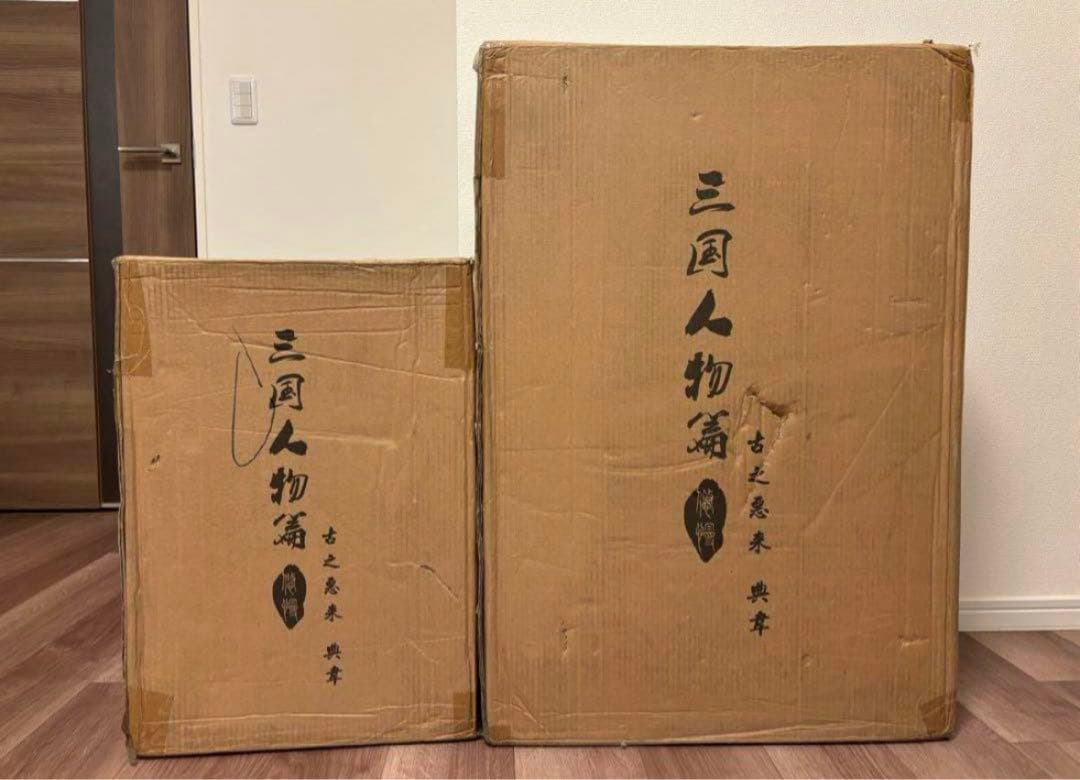 三国人物篇
古之恶来 典韋
三国人物篇
古之恶来 典韋